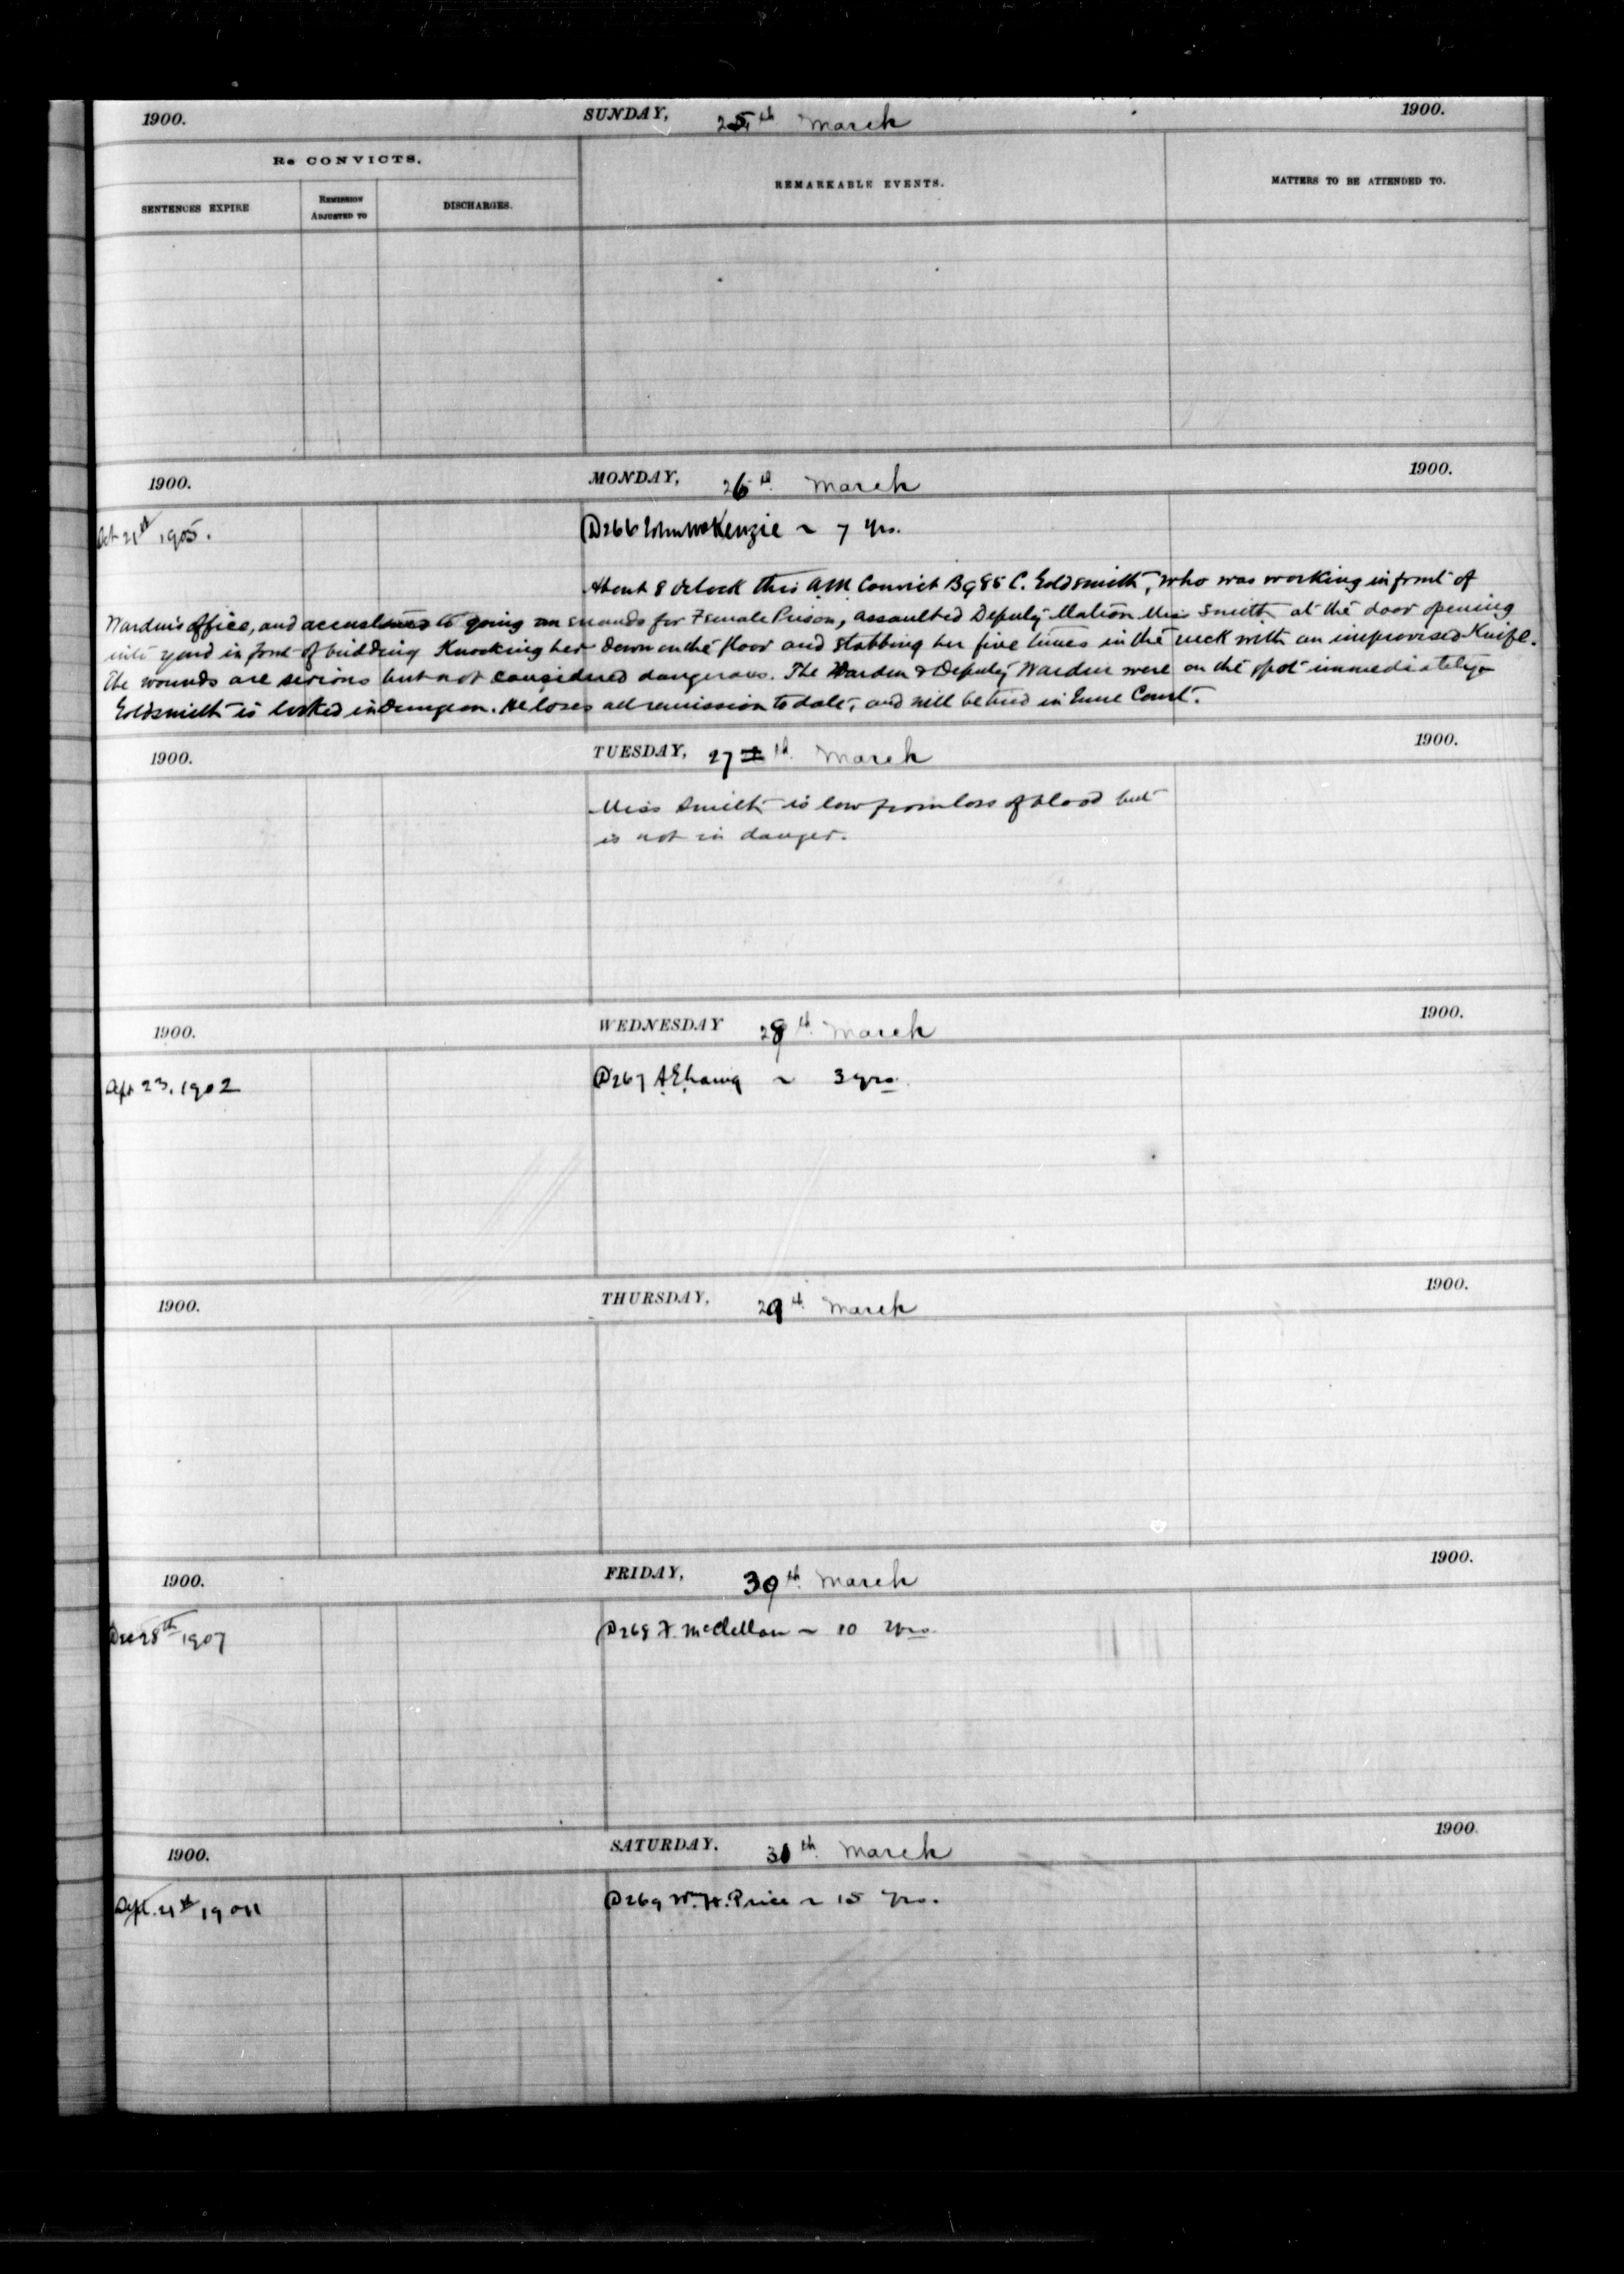 1900. SUNDAY, 25th March 1900.
Re CONVICTS.
REMARKABLE EVENTS.
MATTERS TO BE ATTENDED TO.
SENTENCES EXPIRE
REMISSION ADJUSTED TO
DISCHARGES.
1900. MONDAY, 26th March 1900.
Oct 21st 1905. D266 John McKenzie ~ 7 yrs.
About 8 oclock this A.M. Convict B985 C. Goldsmith, who was working in front of
Warden's office, and accustomed to going on errands for Female Prison, assaulted Deputy Matron Miss Smith at the door opening
into yard in front of building Knocking her down on the floor and stabbing her five times in the neck with an improvised Knife.
The wounds are serious but not considered dangerous. The Warden & Deputy Warden were on the spot immediately
Goldsmith is locked in Dungeon. He loses all remission to date, and will be tried in Court.
1900. TUESDAY, 27th March 1900.
Miss Smith is low from loss of blood but
is not in danger.
1900. WEDNESDAY 28th March 1900.
Sept 23, 1902 D267 A.E. ~ 3 yrs.
1900. THURSDAY, 29th March 1900.
1900. FRIDAY, 30th March 1900.
Dec 28th 1907 D268 F. McClellan ~ 10 yrs.
1900. SATURDAY. 31th March 1900.
Sept. 1911 D269 Wm. H. Price ~ 15 yrs.